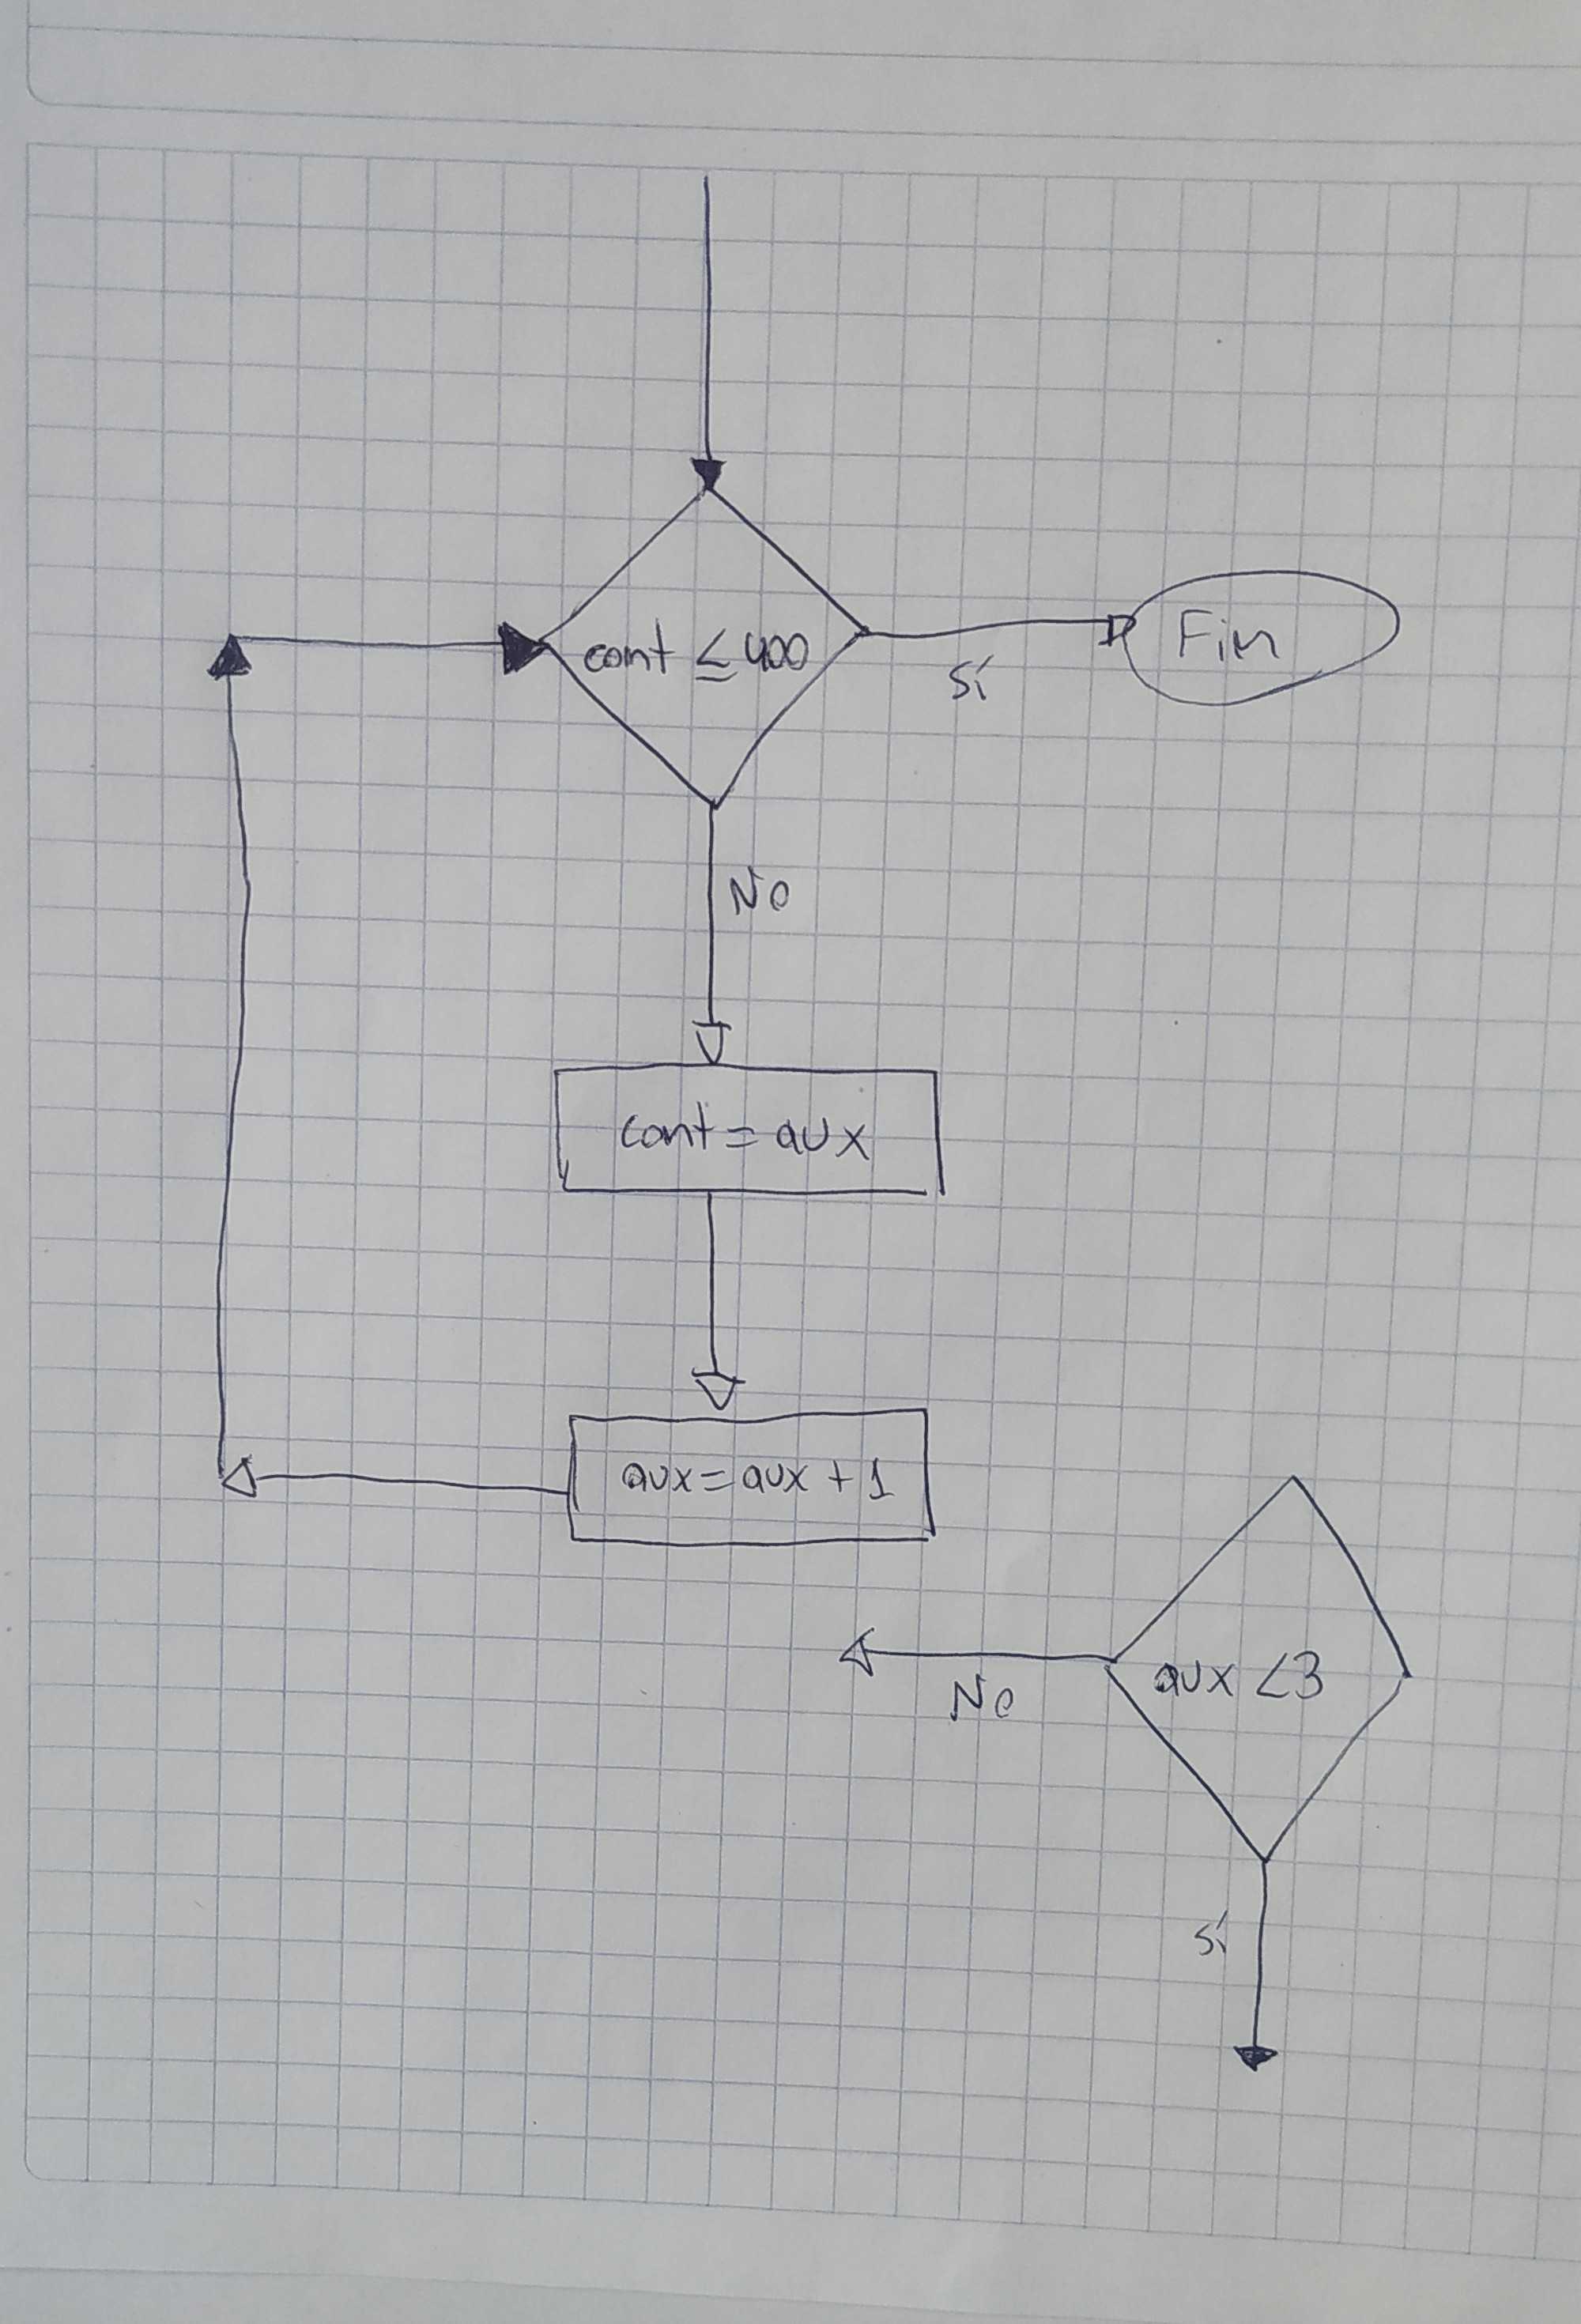 cont ≤ 400
Sí
Fin
No
cont = aux
aux = aux + 1
aux < 3
No
Sí